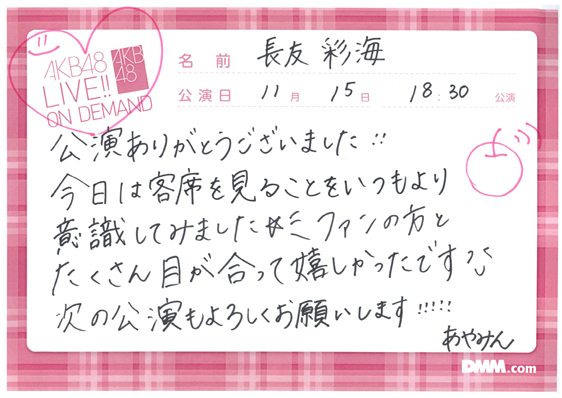 AKB48
LIVE!!
ON DEMAND
AKB
48
名前 長友 彩海
公演日 11月 15日 18:30 公演
公演ありがとうございました!!
今日は客席を見ることをいつもより
意識してみました ファンの方と
たくさん目が合って嬉しかったです
次の公演もよろしくお願いします!!!!!
あやみん
DMM.com